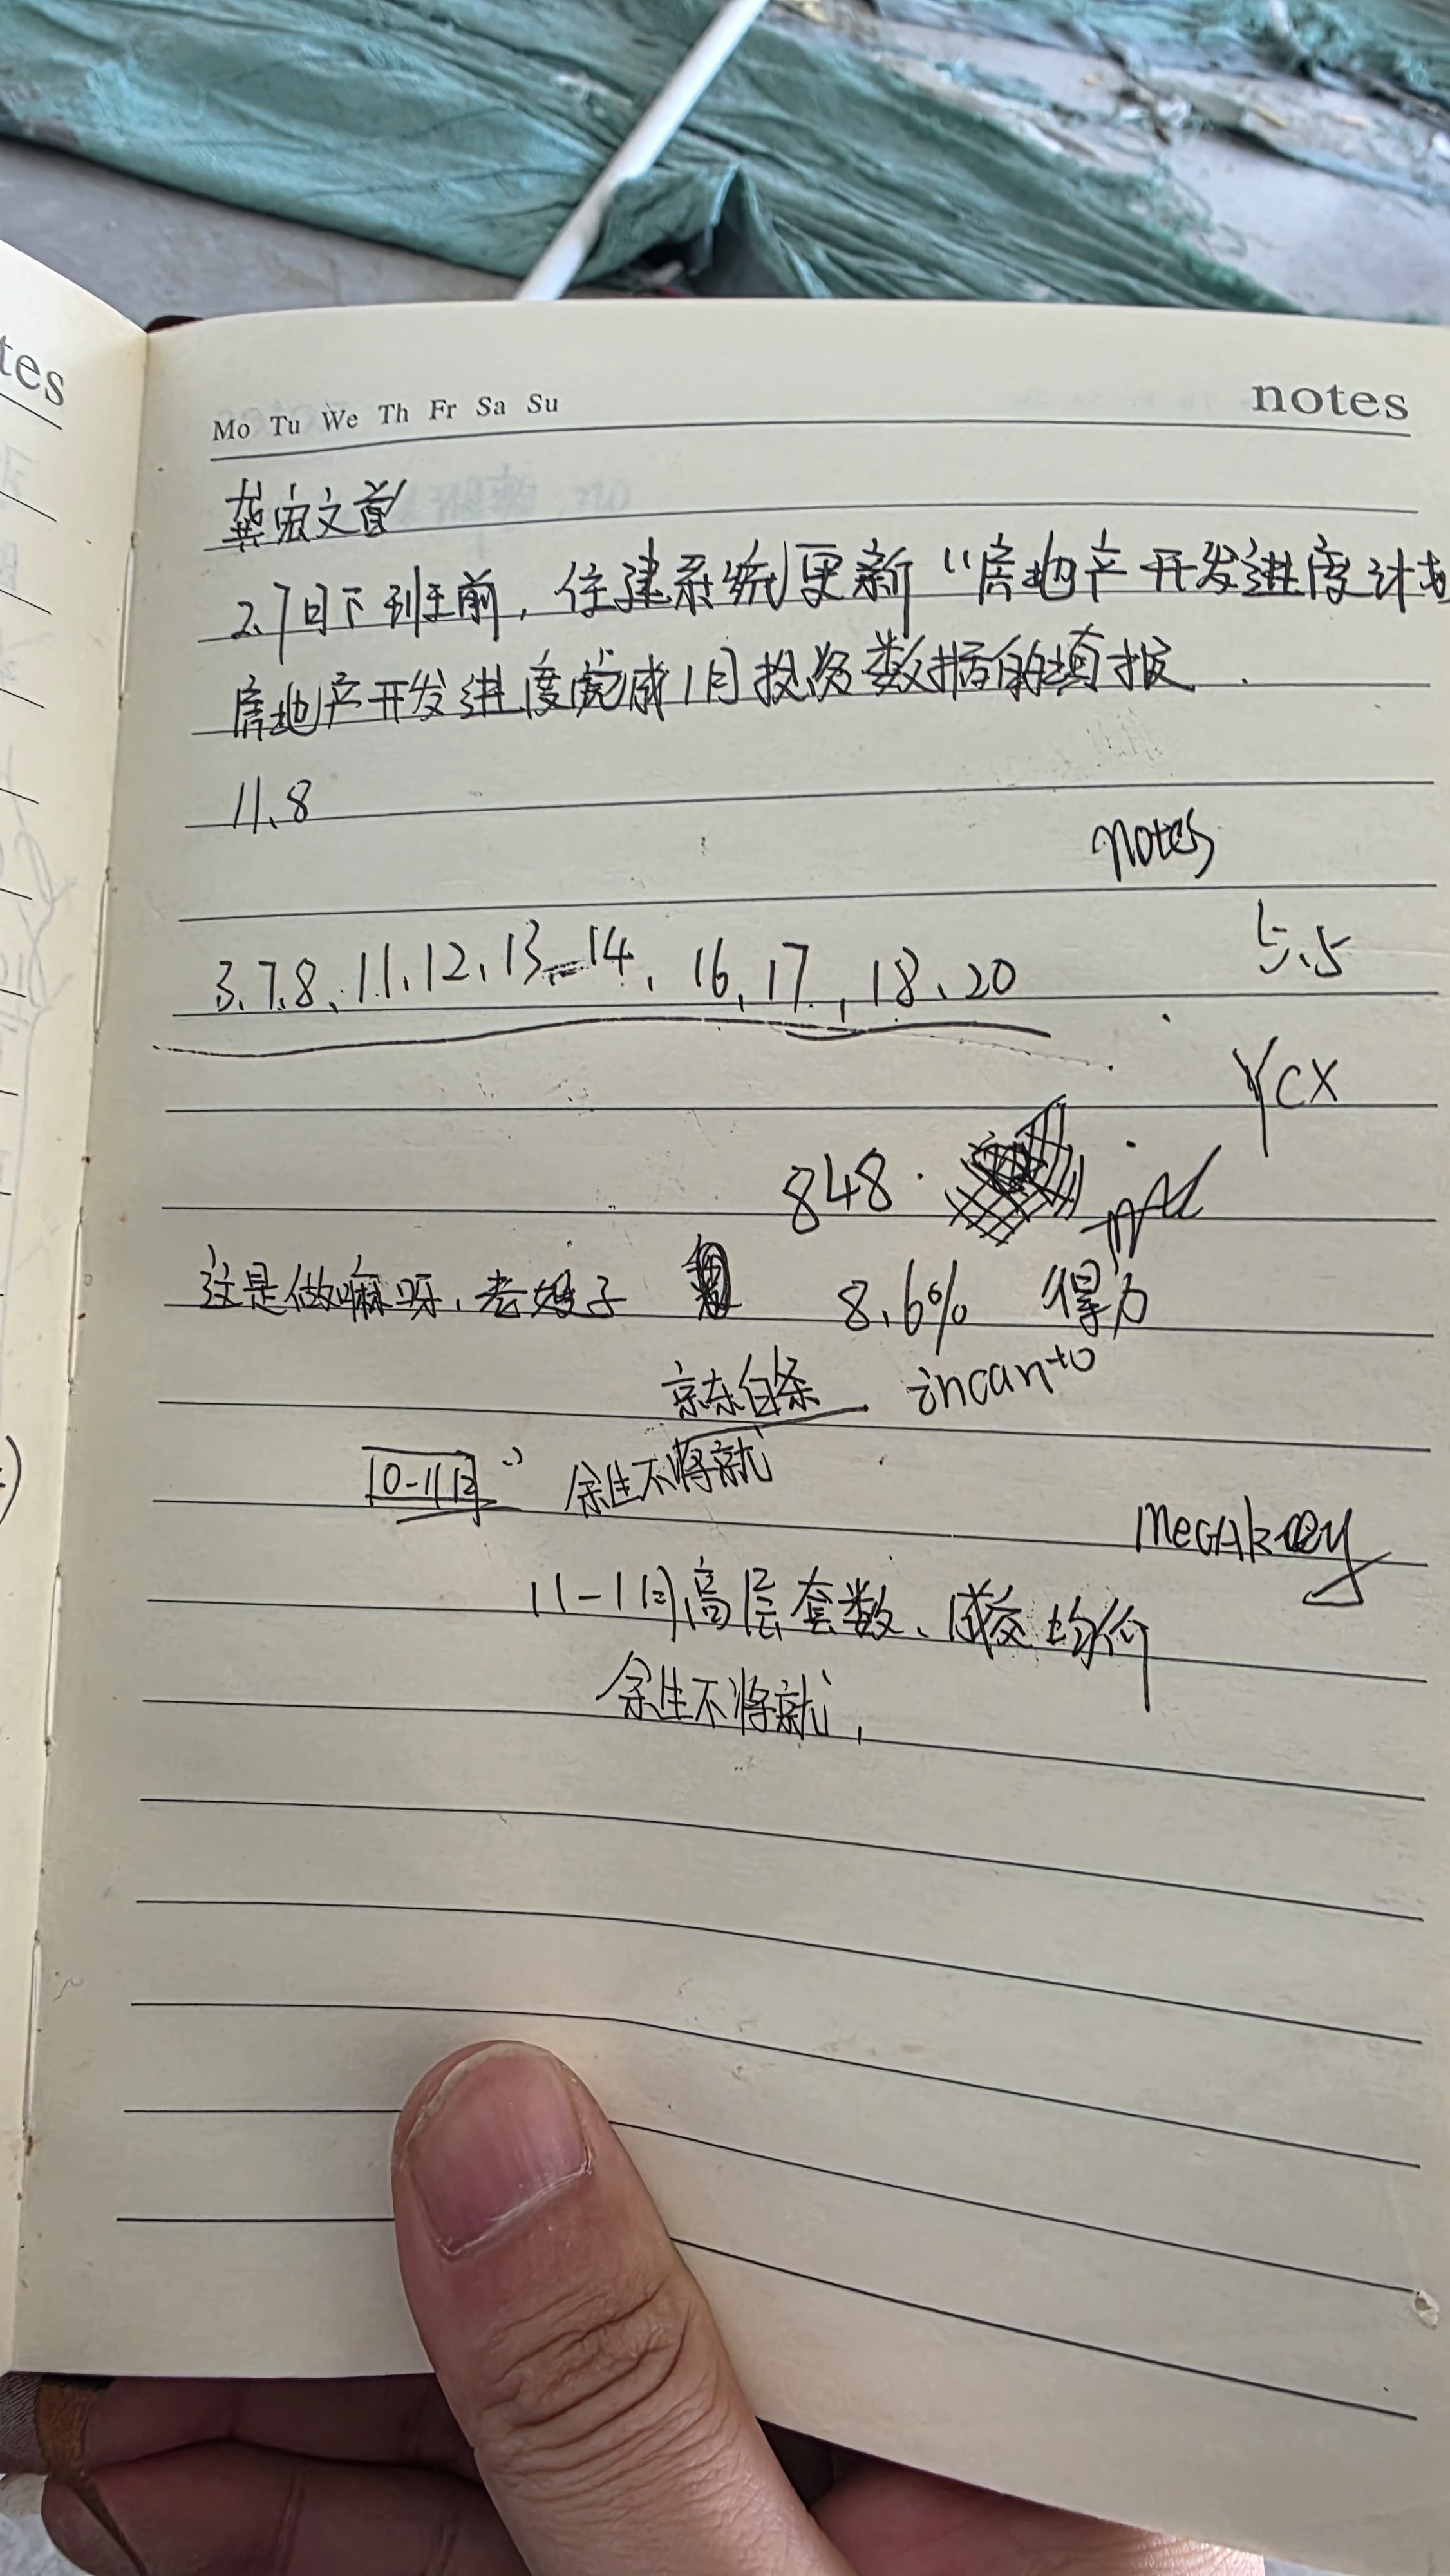 tes
Mo Tu We Th Fr Sa Su notes
龚宏文首
2.7日下班前，住建系统更新“房地产开发进度计划
房地产开发进度完成1月投资数据的填报
11.8
notes
3.7.8、11、12、13 14、16、17、18、20
5.5
YCX
848.
这是做嘛呀、老嫂子 8.6% 得力
京东白条 incanto
10-11日 余生不将就
Megakey
11-1月高层套数、成交均价
余生不将就，